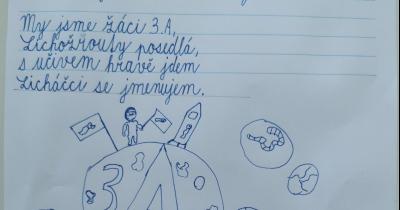 My jsme žáci 3.A,
Lichožrouty posedlá,
s učivem hravě jdem
Licháčci se jmenujem.
3 A